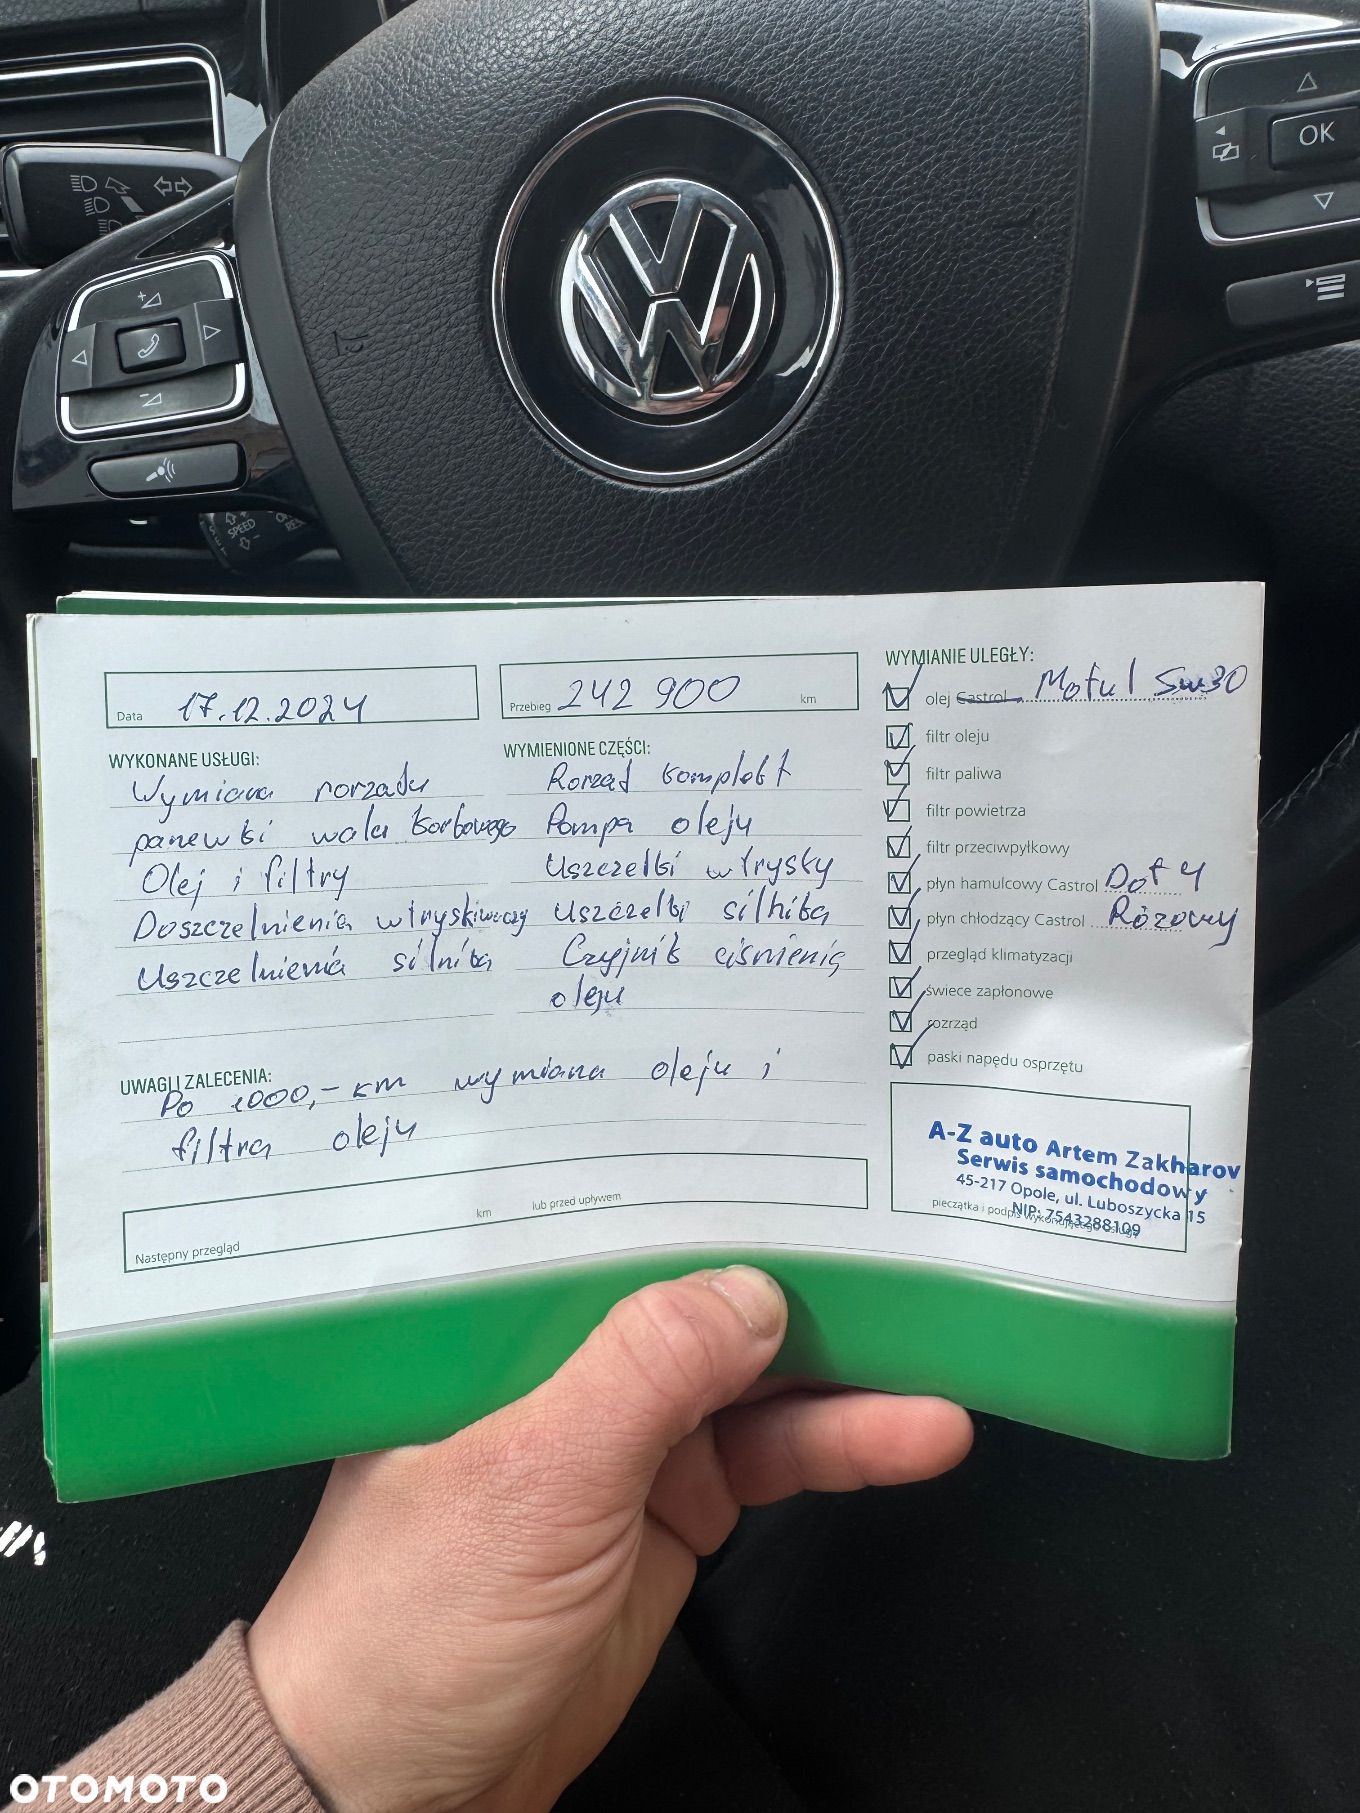 OK
SPEED
17.12.2024
Data
242 900
Przebieg
km
WYKONANE USŁUGI:
Wymiana rorządu
panewki wału korbowego
Olej i filtry
Doszczelnienia wtryskiwaczy
Uszczelnienia silnika
WYMIENIONE CZĘŚCI:
Rorząd komplekt
Pompa oleju
Uszczelki wtrysky
Uszczelki silnika
Czyjnik ciśnienia
oleju
UWAGI I ZALECENIA:
Po 1000,- km wymiana oleju i
filtra oleju
km
lub przed upływem
Następny przegląd
WYMIANIE ULEGŁY:
olej Castrol Motul 5w30
filtr oleju
filtr paliwa
filtr powietrza
filtr przeciwpyłkowy
płyn hamulcowy Castrol Dot 4
płyn chłodzący Castrol Różowy
przegląd klimatyzacji
świece zapłonowe
rozrząd
paski napędu osprzętu
A-Z auto Artem Zakharov
Serwis samochodowy
45-217 Opole, ul. Luboszycka 15
NIP: 7543288109
pieczątka i podpis wykonującego usługę
OTOMOTO